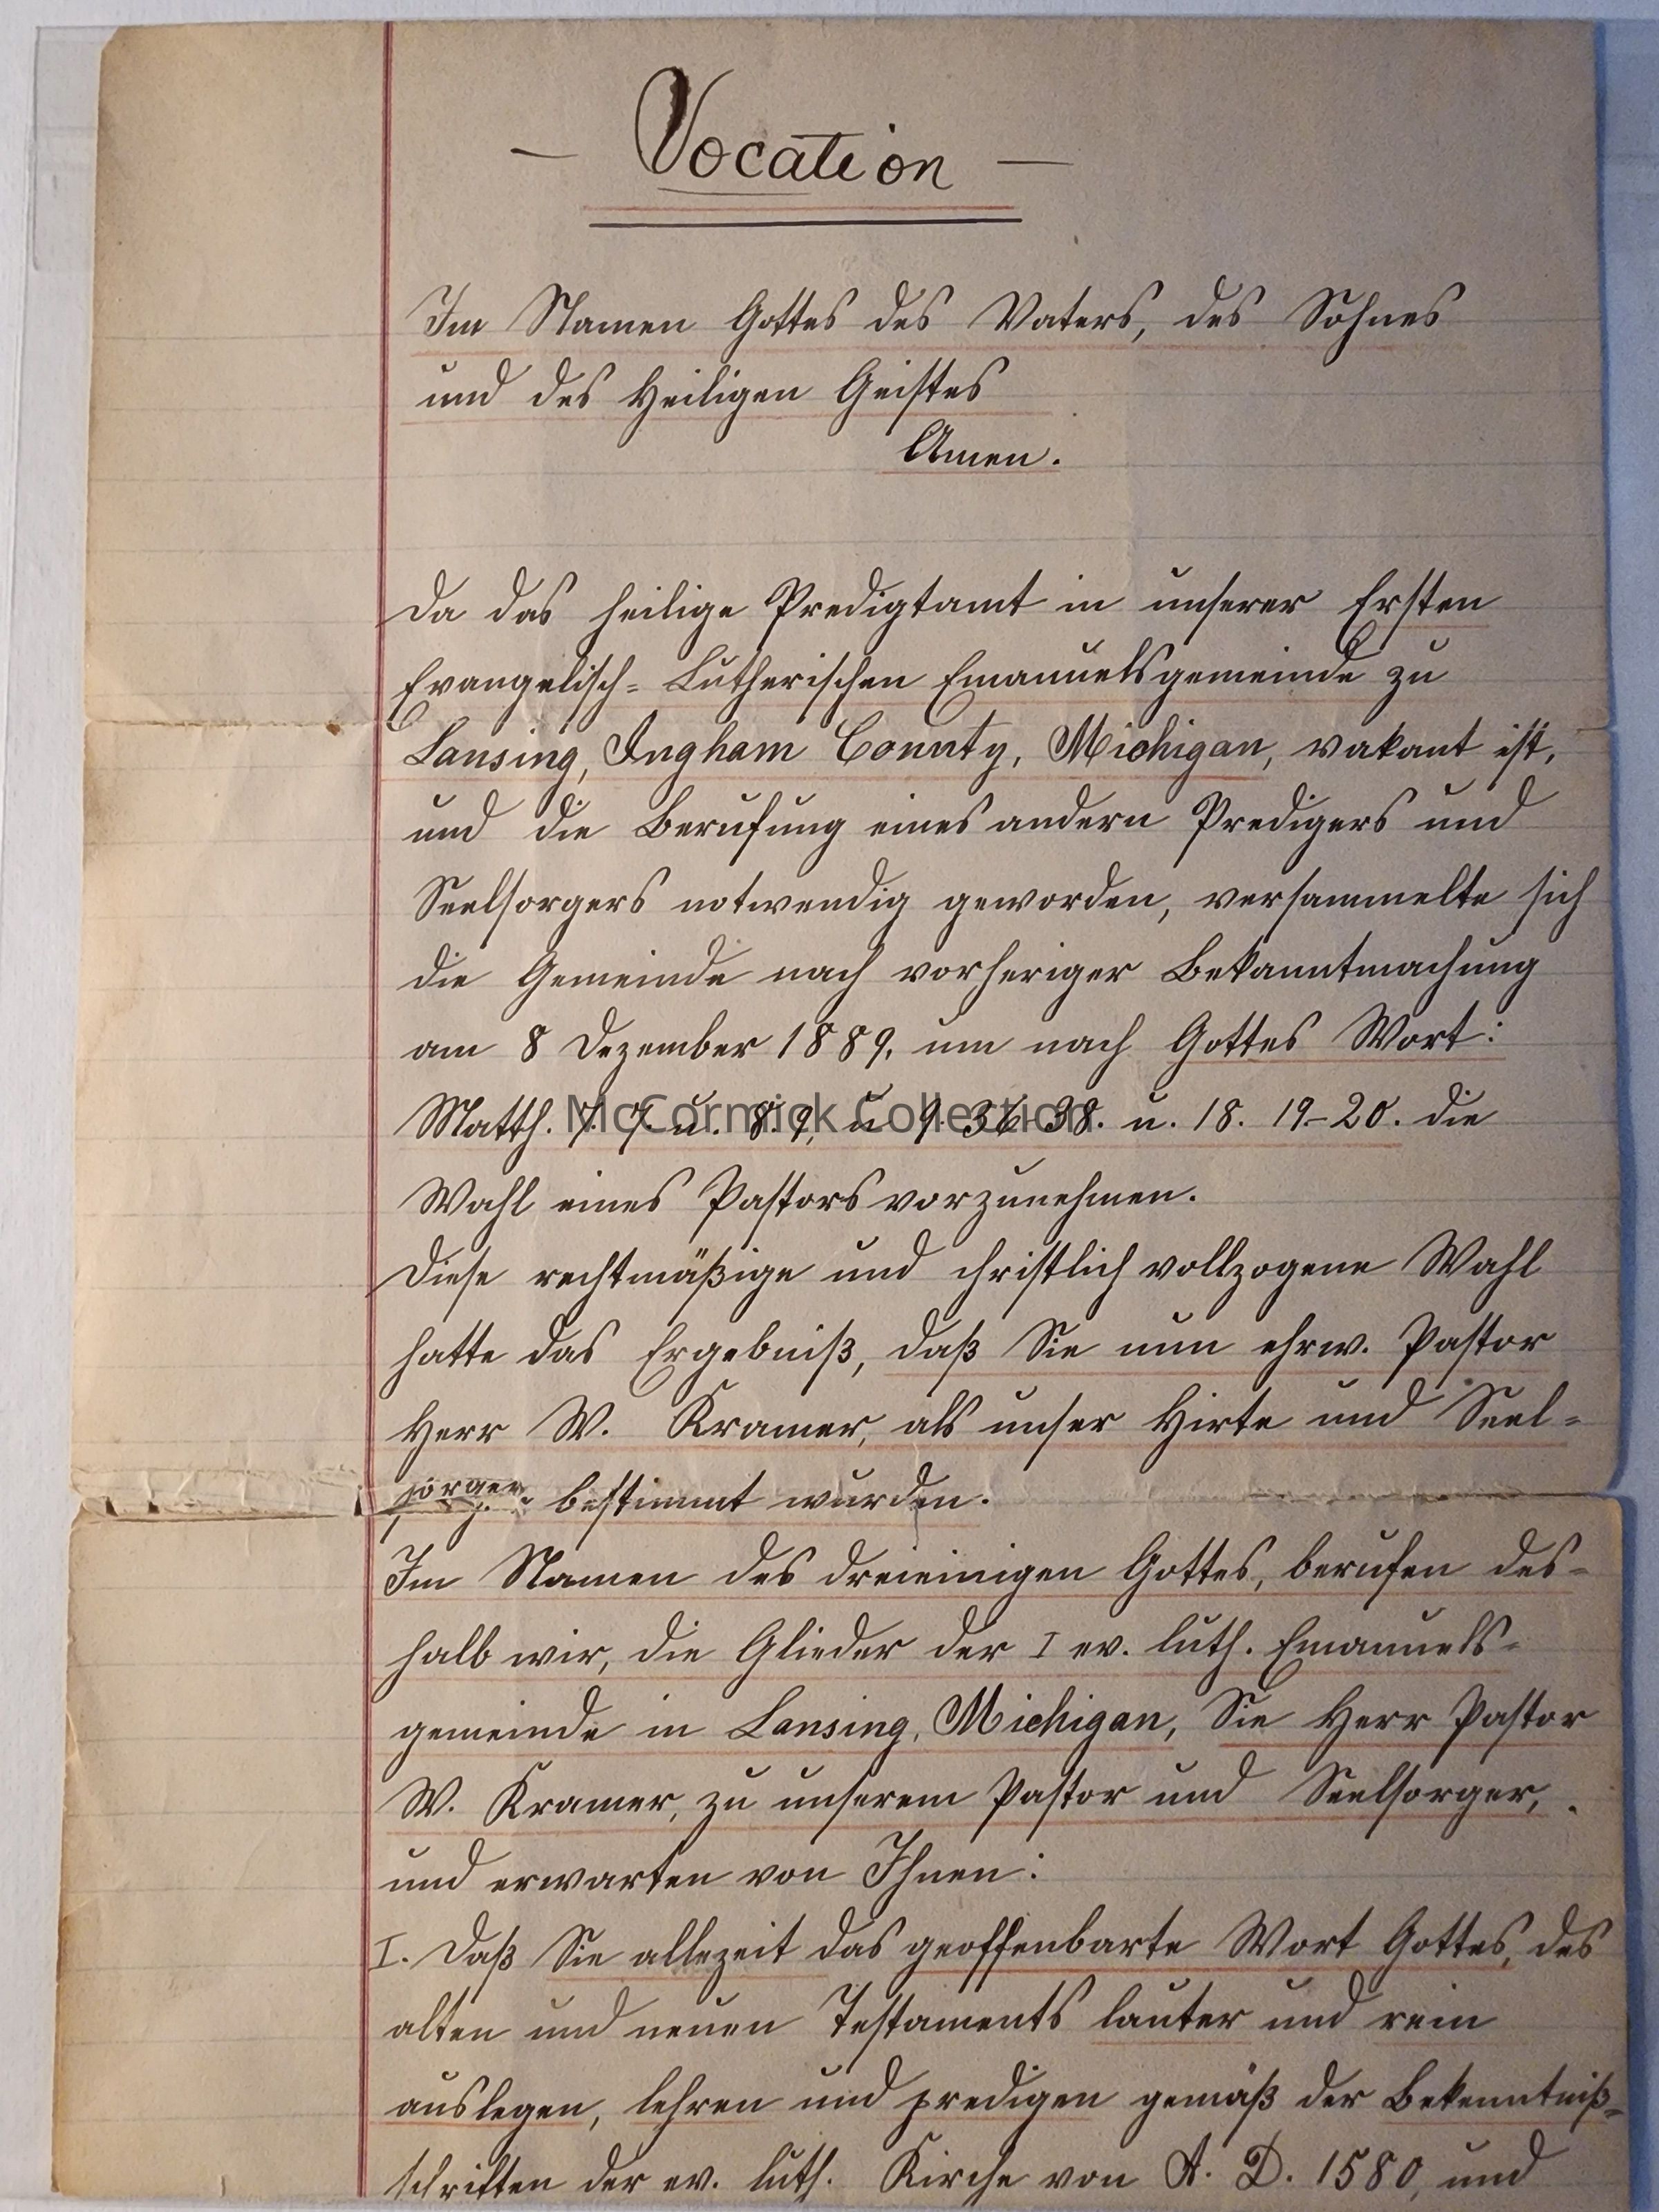 — Vocation —
Im Namen Gottes des Vaters, des Sohnes
und des Heiligen Geistes
Amen.
Da das heilige Predigtamt in unserer Ersten
Evangelisch-Lutherischen Emanuelsgemeinde zu
Lansing, Ingham County, Michigan, vakant ist,
und die Berufung eines andern Predigers und
Seelsorgers notwendig geworden, versammelte sich
die Gemeinde nach vorheriger Bekanntmachung
am 8 Dezember 1889, um nach Gottes Wort:
Matth. 7. 7. u. 8. 9, u 9. 36-38. u. 18. 19-20. die
McCormick Collection
Wahl eines Pastors vorzunehmen.
Diese rechtmäßige und christlich vollzogene Wahl
hatte das Ergebniß, daß Sie nun ehrw. Pastor
Herr W. Kramer, als unser Hirte und Seel-
sorger bestimmt wurden.
Im Namen des dreieinigen Gottes, berufen des-
halb wir, die Glieder der I ev. luth. Emanuels-
gemeinde in Lansing, Michigan, Sie Herr Pastor
W. Kramer, zu unserem Pastor und Seelsorger,
und erwarten von Ihnen:
I. Daß Sie allezeit das geoffenbarte Wort Gottes, des
alten und neuen Testaments lauter und rein
auslegen, lehren und predigen gemäß der Bekenntniß-
schriften der ev. luth. Kirche von A. D. 1580, und